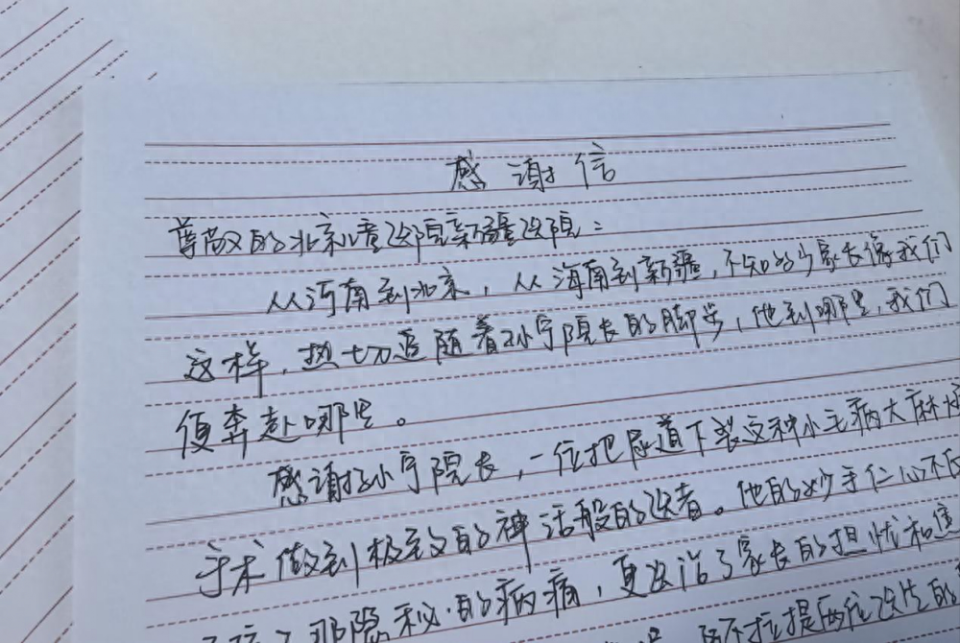 感谢信
尊敬的北京儿童医院新疆医院：
从河南到北京，从海南到新疆，不知多少家长像我们
这样，热切追随着孙宁院长的脚步，他到哪里，我们
便奔赴哪里。
感谢孙宁院长，一位把尿道下裂这种小毛病大麻烦
手术做到极致的神话般的医者。他的妙手仁心不仅
那隐秘的病痛，更医治了家长的担忧和焦
两位医生的